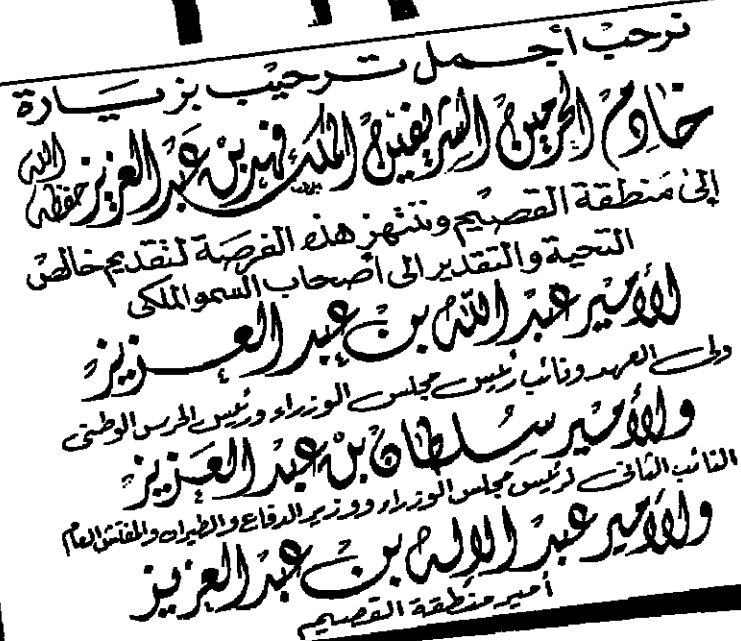 نرحب أجمل ترحيب بزيارة
خادم الحرمين الشريفين الملك فهد بن عبد العزيز حفظه الله
إلى منطقة القصيم وننتهز هذه الفرصة لتقديم خالص
التحية والتقدير الى أصحاب السمو الملكى
الأمير عبد الله بن عبد العزيز
ولى العهد ونائب رئيس مجلس الوزراء ورئيس الحرس الوطنى
والأمير سلطان بن عبد العزيز
النائب الثانى لرئيس مجلس الوزراء ووزير الدفاع والطيران والمفتش العام
والأمير عبد الإله بن عبد العزيز
أمير منطقة القصيم